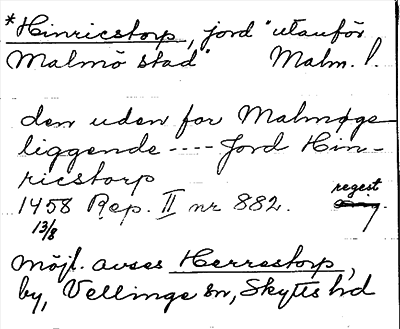 *Hinricstorp, jord "utanför
Malmö stad" Malm. l.
den uden for Malmøge
liggende ---- Jord Hin-
ricstorp
1458 Rep. II nr 882. regest
13/8
möjl. avses Herrestorp,
by, Vellinge sn, Skytts hd